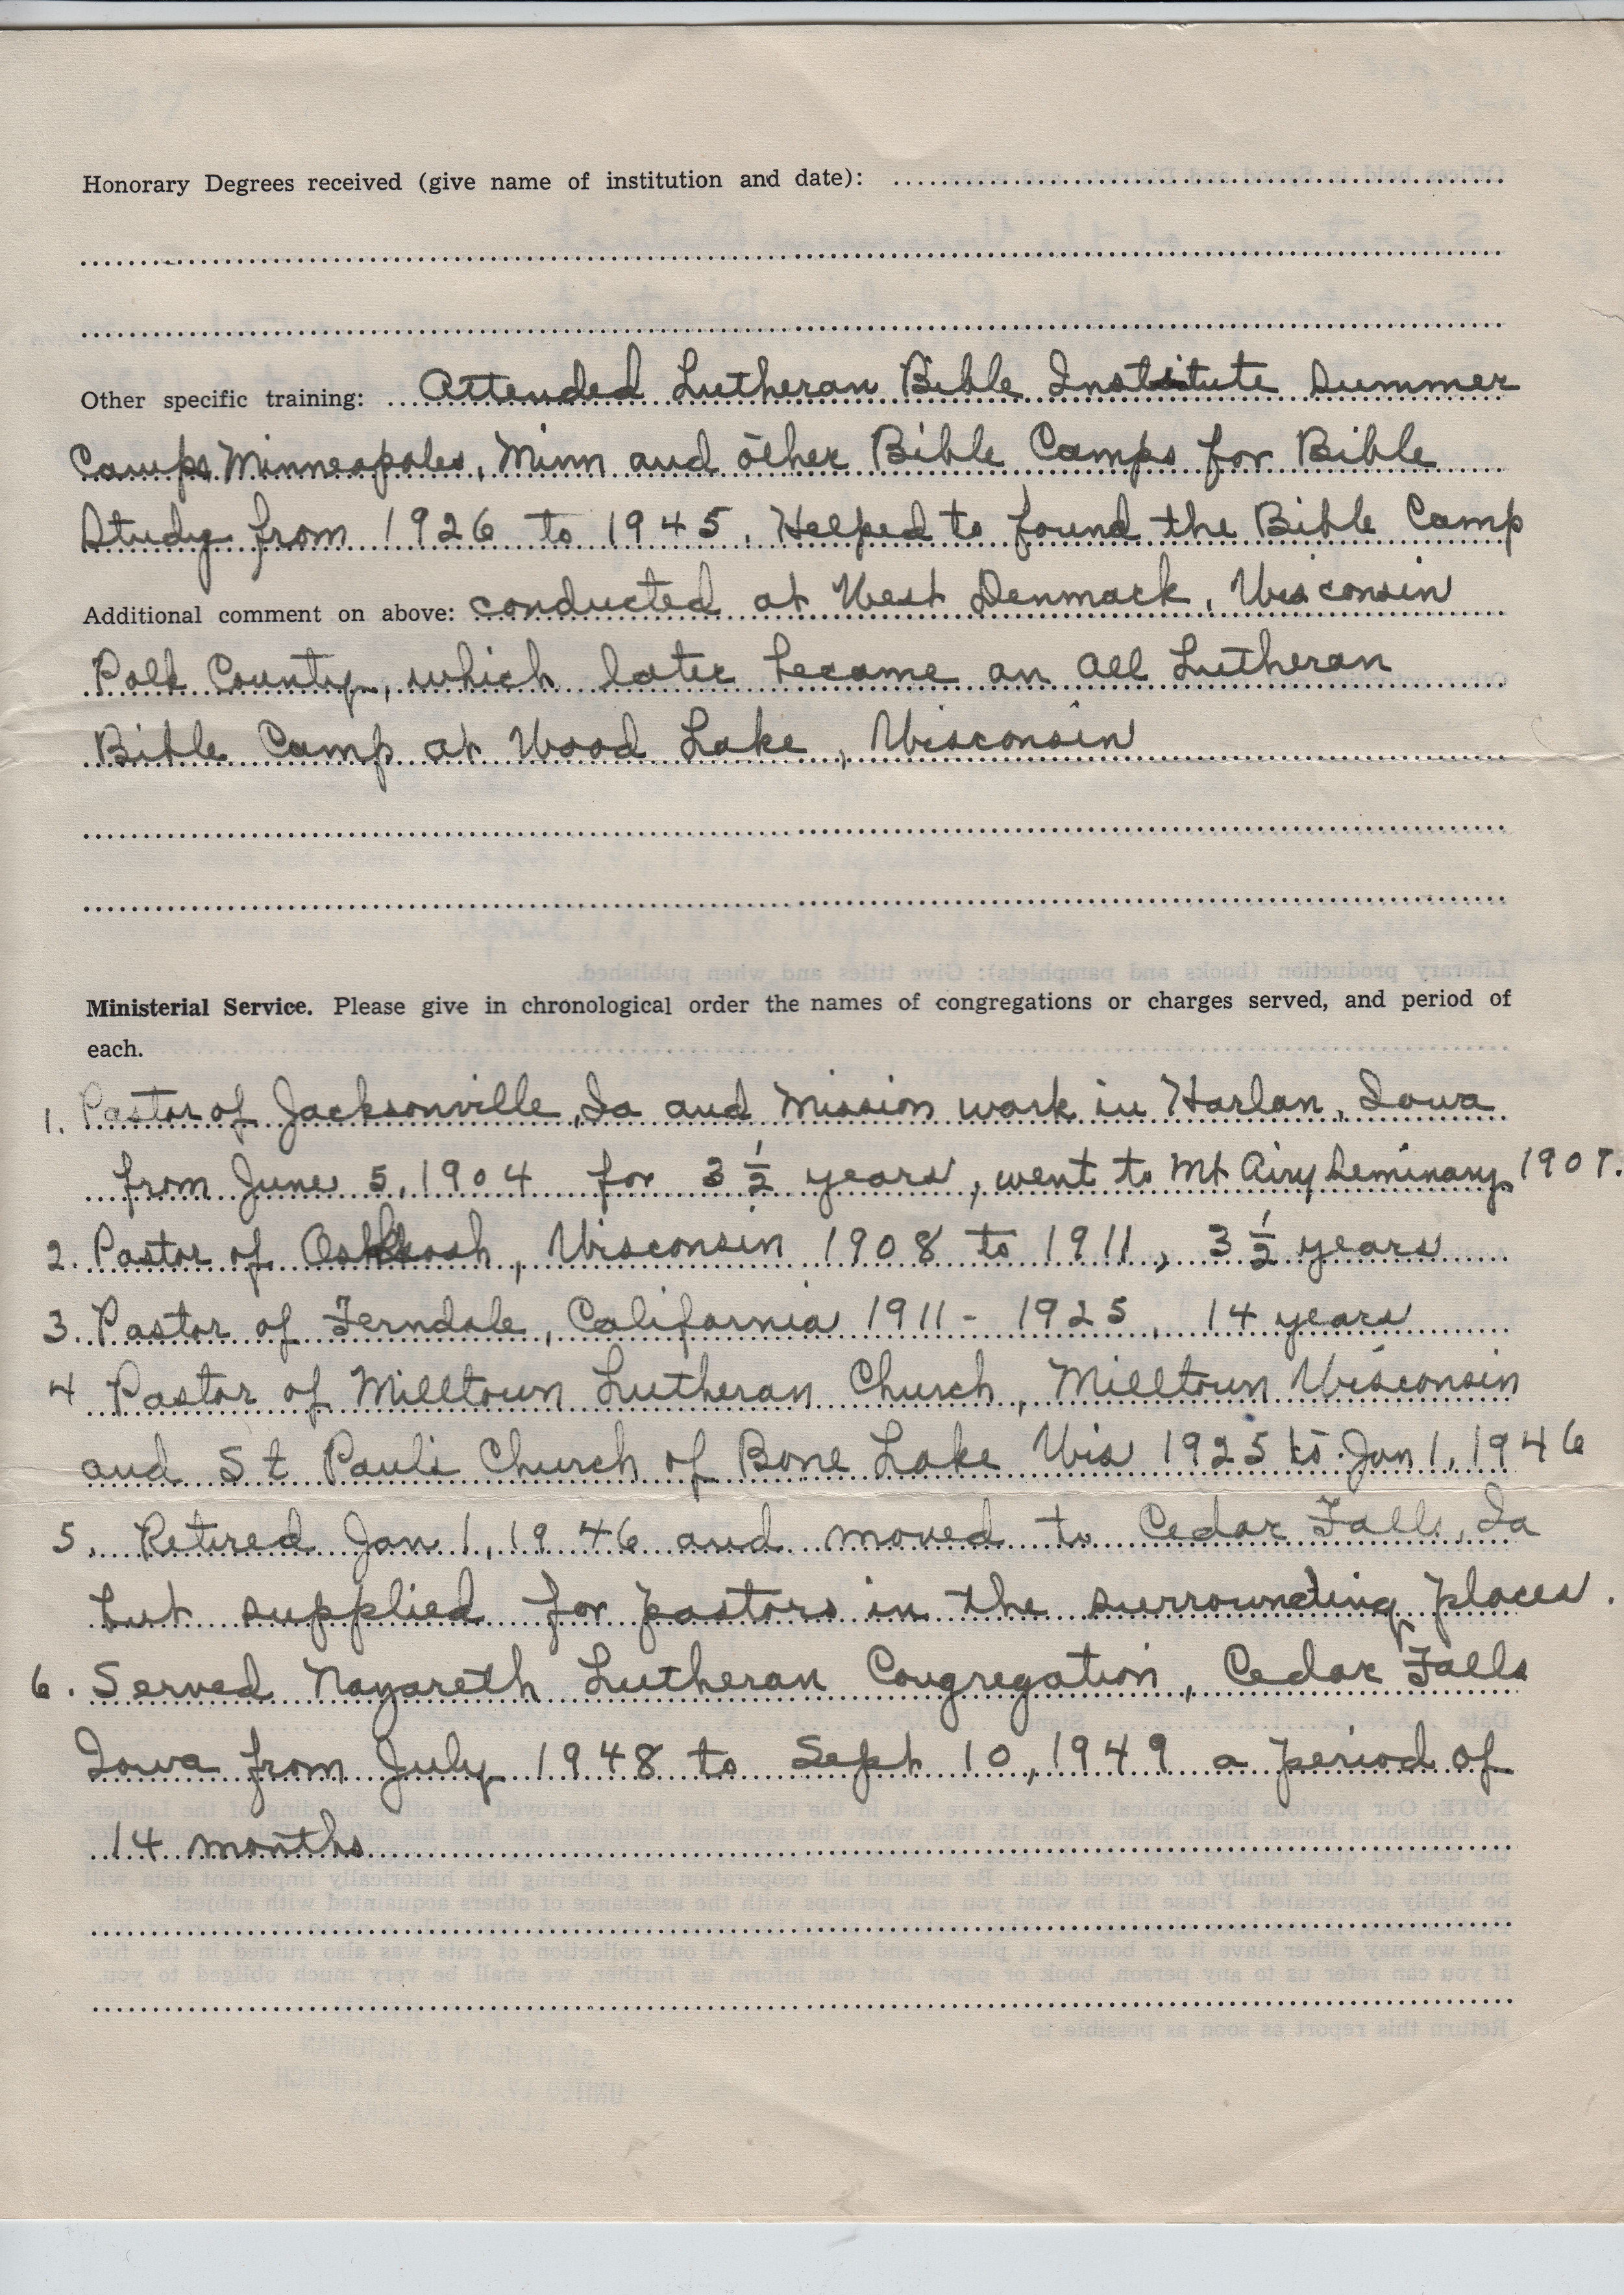 Honorary Degrees received (give name of institution and date):
Other specific training: Attended Lutheran Bible Institute Summer
Camps Minneapoles, Minn and other Bible Camps for Bible
Study from 1926 to 1945. Helped to found the Bible Camp
Additional comment on above: conducted at West Denmark, Wisconsin
Polk County, which later became an all Lutheran
Bible Camp at Wood Lake, Wisconsin
Ministerial Service. Please give in chronological order the names of congregations or charges served, and period of
each.
1. Pastor of Jacksonville, Ia and Mission work in Harlan, Iowa
from June 5, 1904 for 3 1/2 years, went to Mt Airy Seminary 1907.
2. Pastor of Oshkosh, Wisconsin 1908 to 1911, 3 1/2 years
3. Pastor of Ferndale, California 1911 - 1925, 14 years
4 Pastor of Milltown Lutheran Church, Milltown Wisconsin
and St Pauls Church of Bone Lake Wis 1925 to Jan 1, 1946
5. Retired Jan 1, 1946 and moved to Cedar Falls, Ia
but supplied for pastors in the surrounding places.
6. Served Nazareth Lutheran Congregation, Cedar Falls
Iowa from July 1948 to Sept 10, 1949 a period of
14 months